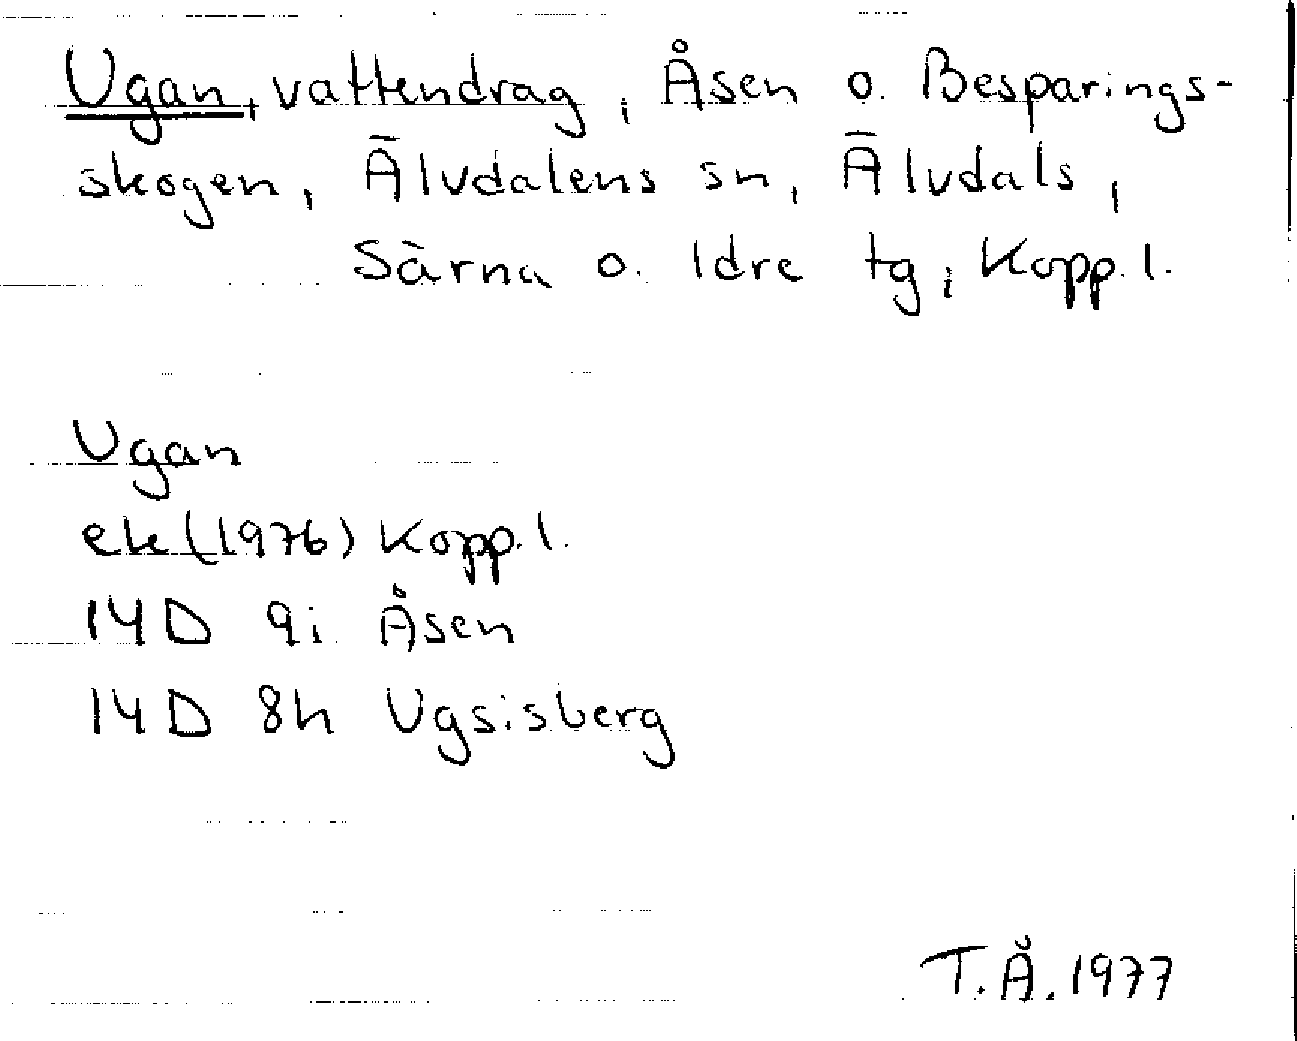 Ugan, vattendrag, Åsen o. Besparings-
skogen, Älvdalens sn, Älvdals,
Särna o. Idre tg, Kopp. l.
Ugan
ek (1976) Kopp. l.
14D 9i Åsen
14D 8h Ugsisberg
T.Å. 1977